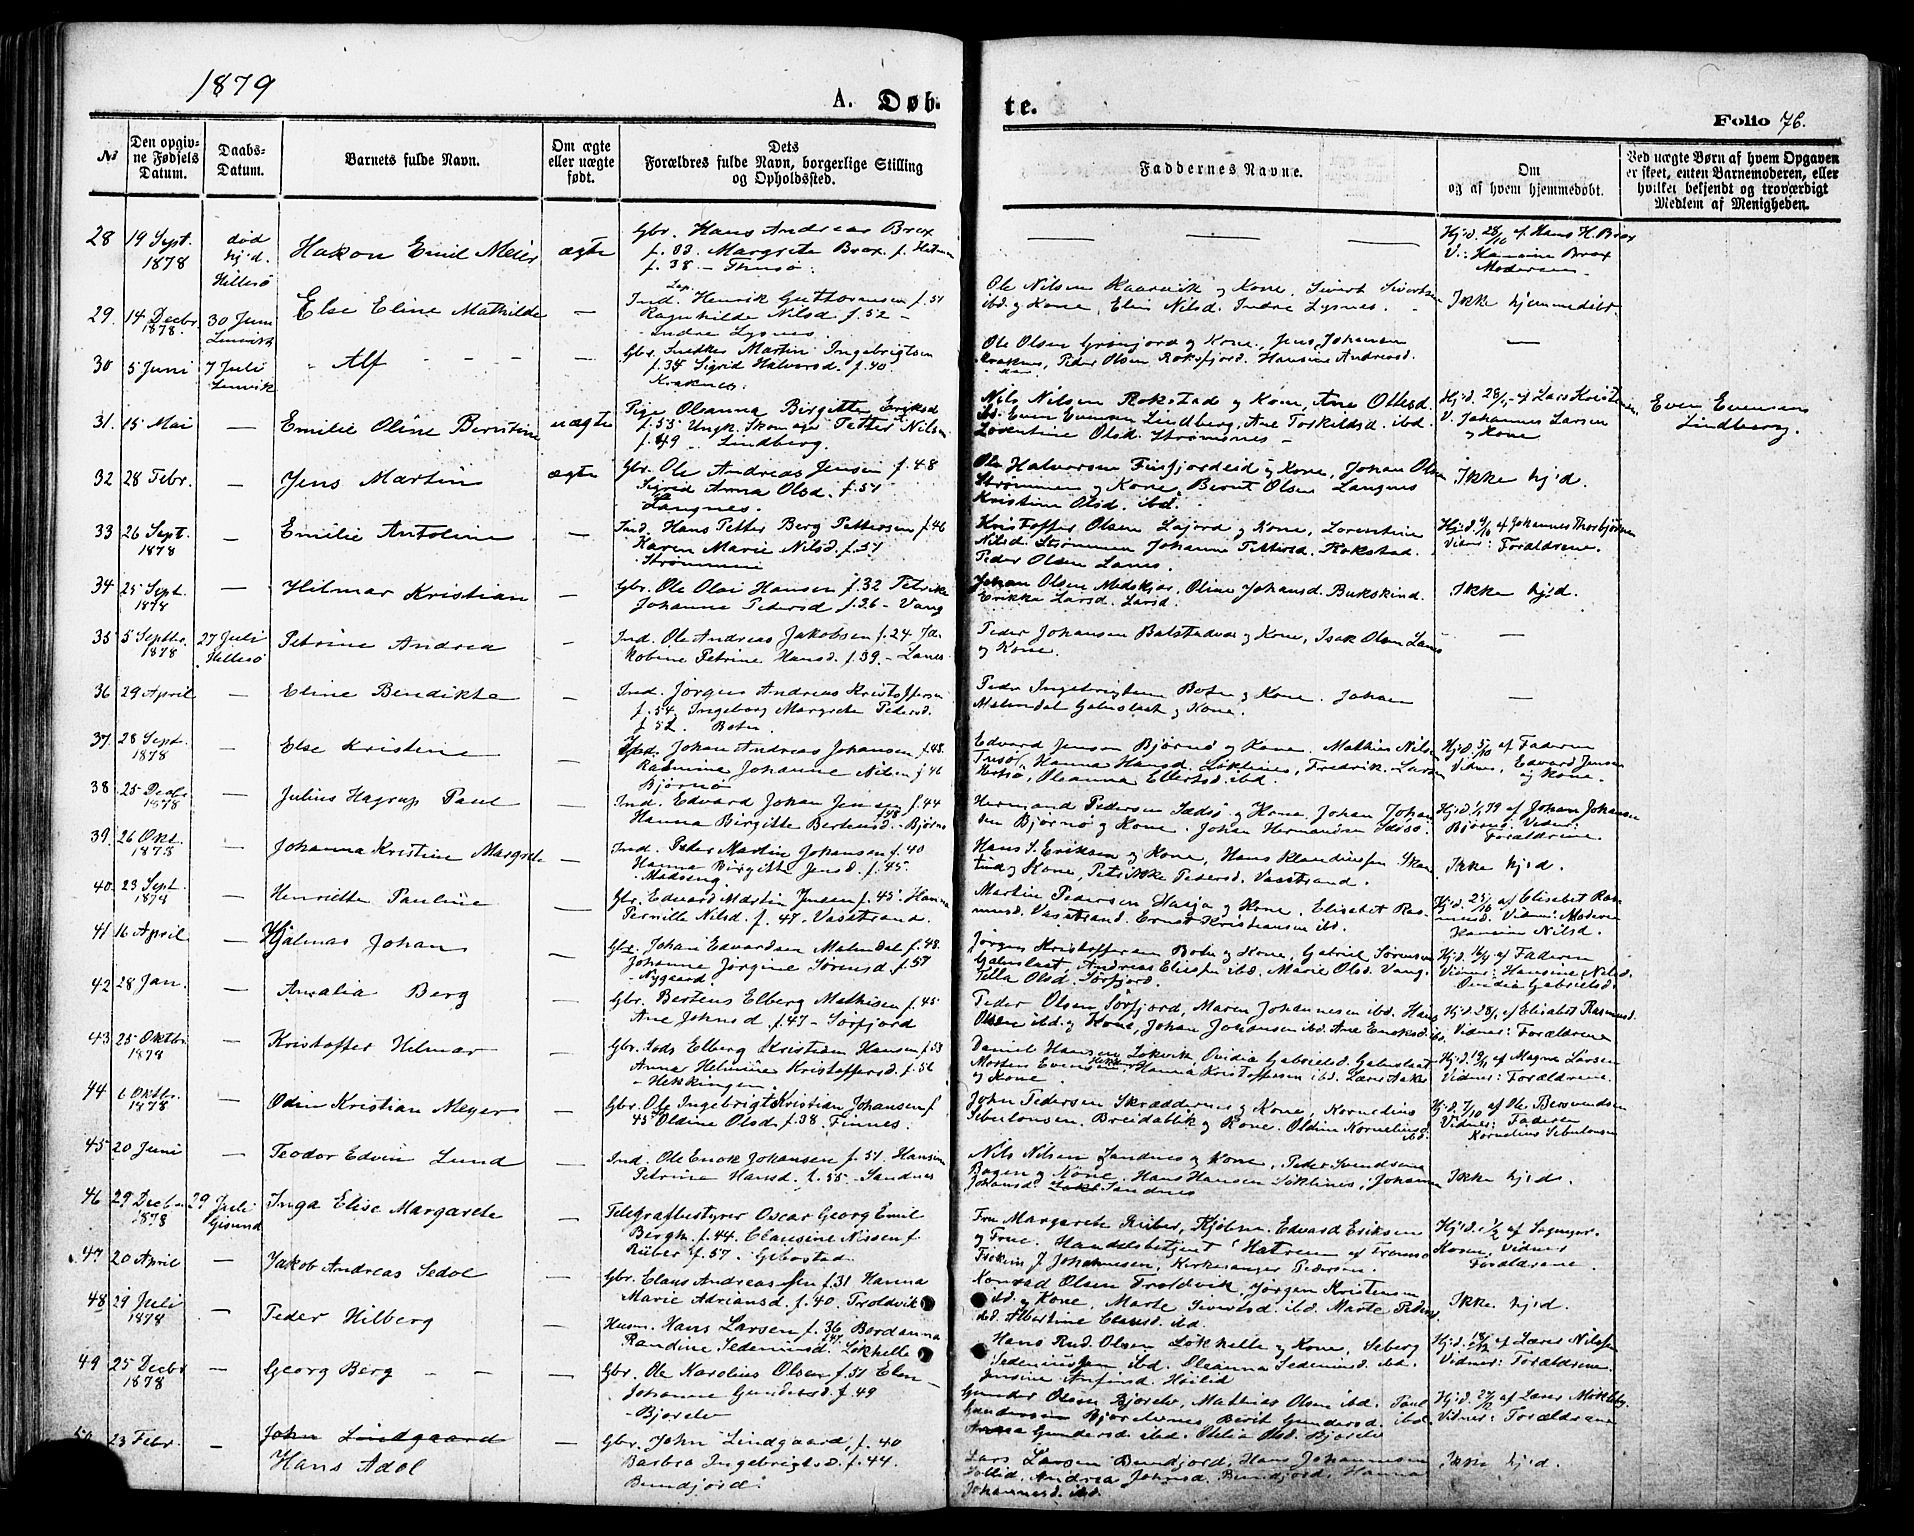 1879
A. Døb-
te.
Folio 76.
No
Den opgiv-
ne Fødsels
Datum.
Daabs-
Datum.
Barnets fulde Navn.
Om ægte
eller uægte
født.
Dets
Forældres fulde Navn, borgerlige Stilling
og Opholdssted.
Faddernes Navne.
Om
og af hvem hjemmedøbt.
Ved uægte Børn af hvem Opgaven
er skeet, enten Barnemoderen, eller
hvilket bekjendt og troværdigt
Medlem af Menigheden.
28
19 Sept.
1878
død
hj.d.
Hillesø
Hakon Emil Meier
ægte
Gbr. Hans Andreas Brox
f. 33. Margrite Brox f.
f. 38 –
Hjd. 28/10 af Hans H. Brox
V.: Hansine Brox
Moderen
29.
14 Decbr.
1878.
30 Juni
Lenvik
Else Eline Mathilde
–
Ind. Henrik Guttormsen f. 51
Ragnhilde Nilsd. f. 52 –
Indre Lysnes
Ole Nilsen Kaarvik og Kone, Sivert Sivertsen
ibd. og Kone, Elen Nilsd. Indre Lysnes.
Ikke hjemmedøbt
30
5 Juni
7 Juli
Lenvik
Alf
–
Gbr. Snedker Martin Ingebrigtsen
f. 34 Sigrid Halvorsd. f. 40
Kraknes
Ole Olsen Grønjord og Kone, Jens Johansen
Kraknes, Peder Olsen Roksfjord. Hansine Andreasd.
–
31.
15 Mai
–
Emilie Oline Berntine
uægte
Pige Oleanna Birgitte Eriksd.
f. 53 Ungk. Skomager Petter Nilsen
f. 49 – Lindberg.
Nils Nilsen Rokstad og Kone, Ane Ottesd.
ibd. Even Evensen Lindberg, Ane Torkildsd. ibd.
Lorentine Olsd. Strømsnes –
Hjd. 28/5 af Lars Kristensen
V. Johannes Larsen
og Kone
Even Evensen
Lindberg.
32
28 Febr.
–
Jens Martin
ægte
Gbr. Ole Andreas Jensen f. 48
Sigrid Anna Olsd. f. 51
Langnes.
Ole Halvorsen Finfjordeid og Kone, Johan Olsen
Strømmen og Kone, Bernt Olsen Langnes
Kristine Olsd. ibd.
Ikke hjd.
33
26 Sept.
1878
–
Emilie Antoline
–
Ind. Hans Petter Berg Pettersen f. 46
Karen Marie Nilsd. f. 37
Strømmen
Kristoffer Olsen Lajord og Kone, Lorentine
Nilsd. Strømmen Johanne Pettersd. Rokstad.
Peder Olsen Lanes.
Hjd. 4/10 af Johannes Thorbjørnsen
Vidner: Forældrene.
34
25 Sept.
1878
–
Hilmar Kristian
–
Gbr. Ole Olai Hansen f. 32 Petrikke
Johanne Pedersd. f. 36 – Vang
Johan Olsen Medskjær, Oline Johansd. Bukskind.
Erikka Larsd. Larsd.
Ikke hjd.
35
5 Septbr.
1878
27 Juli
Hillesø
Petrine Andrea
Ind. Ole Andreas Jakobsen f. 24 Ja-
kobine Petrine Hansd. f. 39. – Lanes
Peder Johansen Balstadvær og Kone, Isak Olsen Lanes
og Kone.
–
36
29 April
–
Eline Bendikte
–
Ind. Jørgen Andreas Kristoffersen
f. 54, Ingeborg Margrete Pedersd.
f. 52. Boten
Peder Ingebrigtsen Boten og Kone. Johan
Malmdal Gabeslaat og Kone.
–
37.
28 Sept.
1878
–
Else Kristine
–
Ind. Johan Andreas Johansen f. 48.
Rasmine Johanne Nilsen f. 46
Bjørnø
Edvard Jensen Bjørnø og Kone. Mathis Nilsen
Tusø, Hanna Hansd. Løklines, Fredrik Larsen
, Oleanna Ellertsd. ibd.
Hjd. 5/10 af Faderen
Vidner, Edvard Jensen
og Kone.
38
25 Decbr.
1878
–
Julius Hagrup Paul
–
Ind. Edvard Johan Jensen f. 44
Hanna Birgitte Berthusd. f. 48 – Bjørnø
Hermand Pedersen Sædsø og Kone, Johan Johan-
sen Bjørnø og Kone. Johan Hermandsen Sædsø.
Hjd. 1/1 79 af Johan Johansen
Bjørnø. Vidner:
Forældrene.
39.
26 Okt.
1878
–
Johanna Kristine Margrete
–
Ind. Peder Martin Johansen f. 40
Hanna Birgitte Jensd. f. 45.
Madseng.
Hans S. Eriksen og Kone, Hans Klaudiussen Skar-
tind og Kone, Petrikke Pedersd. Vasstrand.
Ikke hjd.
40.
23 Sept.
1878
–
Henriette Pauline
–
Gbr. Edvard Martin Jensen f. 45. Hanna
Pernille Nilsd. f. 47, Vasstrand.
Martin Pedersen Hasja og Kone, Elisabet Ras-
musd. Vasstrand. Ernst Kristiansen ibd.
Hjd. 25/10 af Elisabet Ras-
musd. Vidner: Moderen
Hansine Nilsd.
41
16 April
–
Hjalmar Johan
–
Gbr. Johan Edvardsen Malmdal f. 48.
Johanne Jørgine Sørensd. f. 57
Nygaard.
Jørgen Kristoffersen Boten og Kone, Gabriel Sørensen
Gabeslaat, Andreas Eliesen ibd. Marie Olsd. Vang.
Tella Olsd. Sørfjord.
Hjd. 16/4 af Faderen
Vidner: Hansine Nilsd.
Ovidia Gabrielsd.
42
28 Jan.
–
Amalia Berg
–
Gbr. Bertens Elberg Mathisen f. 45
Ane Johnsd. f. 47 – Sørfjord
Peder Olsen Sørfjord, Maren Johannesen ibd. Hans
Olsen ibd. og Kone, Johan Johansen ibd. Ane Enoksd. ibd.
Hjd. 28/1 af Elisabet Rasmusd.
Vidner: Forældrene
43
25 Oktbr.
1878
–
Kristoffer Hilmar
–
Gbr. Elberg Kristian Hansen f. 53
Anna Helmine Kristoffersd. f. 56
– Hekkingen
Daniel Hansen Løkvik, Ovidia Gabrielsd. Gabeslaat
Morten Evensen, Hanna Kristoffersen ibd. Lars
og Kone
Hjd. 19/11 af Magna Larsen
Vidner: Forældrene.
44
6 Oktbr.
1878
–
Odin Kristian Meyer
–
Gbr. Ole Ingebrigt Kristian Johansen f.
45 Oldine Olsd. f. 38. Finnes.
John Pedersen Skræddernes og Kone, Kornelius
Sebulonsen, Breidablik og Kone. Oldine Korneliusd.
ibd.
Hjd. 7/10 af Ole Bersvendsen
Vidner: Faderen
Kornelius Sebulonsen
45
20 Juni
–
Teodor Edvin Lund
–
Ind. Ole Enok Johansen f. 51. Hansine
Petrine Hansd. f. 55 – Sandnes
Nils Nilsen Sandnes og Kone, Peder Svendsen
Bogen og Kone, Hans Hansen Løklines, Johanna
Johansd. Sandnes
Ikke hjd.
46
29 Decbr.
1878
29 Juli
Gisund
Inga Elise Margarete
–
Telegrafbestyrer Oscar Georg Emil
Bergh. f. 44. Clausine Nissen f.
Rüber f. 57. Gibostad
Fru Margarete Rüber, Kjøbm. Edvard Eriksen
og Frue. Handelsbetjent Hatrem af Tromsø
Frøken J. Johannesen, Kirkesanger Pedersen.
Hjd. 1/2 af Sogneprest
Koren. Vidner
Forældrene.
47
20 April
–
Jakob Andreas Sedol
–
Gbr. Claus Andreassen f. 31 Hanna
Marie Adriansd. f. 40 Troldvik
Konrad Olsen Troldvik, Jørgen Kristensen
ibd. og Kone, Marte Sivertsd. ibd. Marte Pedersd.
ibd. Albertine Clausd. ibd.
Ikke hjd.
48
29 Juli
1878
–
Peder Hilberg
–
Husm. Hans Larsen f. 36 Bordanna
Randine Sedeniusd. f. 47 Lokhelle
Hans Rud. Olsen Lokhelle og Kone, Seberg
Sedeniussen ibd. Oleanna Sedeniusd. ibd.
Jensine Høilid
Hjd. 18/12 af Lærer Nilssen
Vidner: Forældrene.
49
25 Decbr.
1878
–
Georg Berg
–
Gbr. Ole Karolius Olsen f. 51 Elen
Johanne Gundersd. f. 49
– Bjorelv
Gunder Olsen Bjorelv, Mathias Olsen ibd. Paul
Gundersen Bjorelvnes, Berit Gundersd. ibd.
Anna Gundersd. ibd. Otelia Olsd. Bjorelv
Hjd. 27/12 af Lærer Mokleby
Vidner: Forældrene
50
23 Febr.
–
John Lindgaard
Hans Adol
–
Gbr. John Lindgaard, f. 40
Barbra Ingebrigtsd. f. 44.
Bundjord.
Lars Larsen Bundjord, Hans Johannesen
Sollid, Andrea Johnsd. Bundjord, Hanna
Johannesd. ibd.
Ikke hjd.